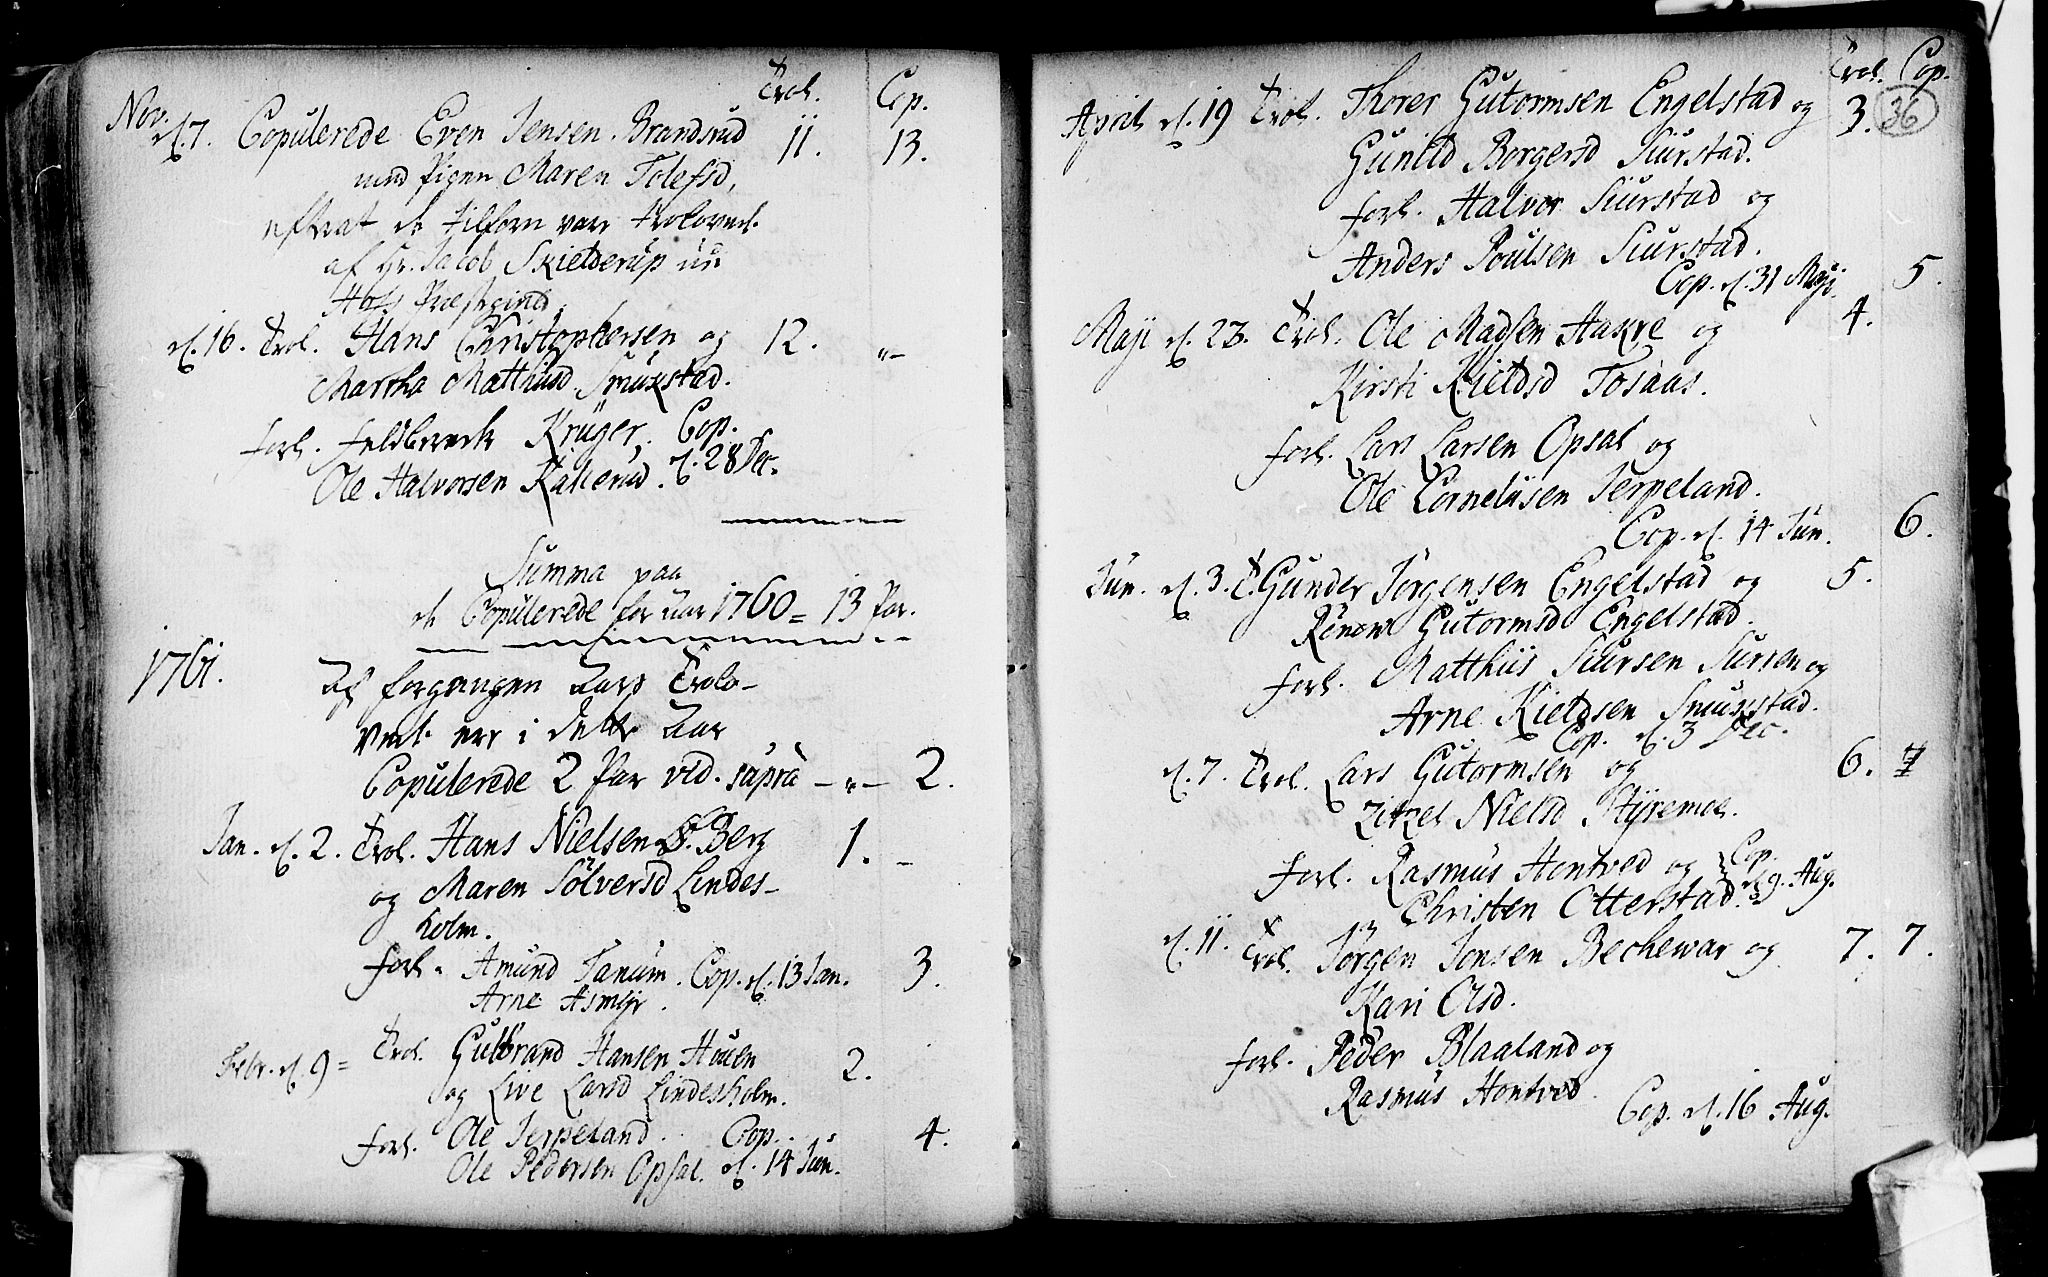 Trol. Cop.
Nov.
d. 7. Copulerede Even Jensen Brandsrud 11. 13.
med Pigen Maren Tolefsd,
efterat de tilforn vare trolovede
af Hr. Jacob Skielderup
d. 16. Trol. Hans Christophersen og 12. "–
Martha Matthiisd. Smukstad.
forl. Krüger, Cop.
Ole Halvorsen Kallerud. d. 28 Dec.
Summa paa
de Copulerede for aar 1760 = 13 Par.
1761. Af forgangen Aars Trolo-
vede ere i dette Aar
Copulerede 2 Par vid. supra – " – 2.
Jan. d. 2. Trol. Hans Nielsen Berg 1. –
og Maren Sölversd Lindes-
holm.
forl. Amund Fanum. Cop. d. 13 Jan. 3.
Arne Asmyr.
Febr. d. 9 = Trol. Gulbrand Hansen Houen 2.
og Live Larsd Lindesholm.
forl. Ole Jerpeland. Cop. 4.
Ole Pedersen Opsal. d. 14 Jun.
Trol. Cop.
36
April d. 19 Trol. Thorer Gutormsen Engelstad og 3.
Gunild Borgersd Siurstad.
forl. Halvor Siurstad og
Anders Poulsen Siurstad.
Cop. d. 31 Maji. 5.
Maji d. 23. Trol. Ole Madsen Aakre og 4.
Kirsti Kieldsd Tosaas.
forl. Lars Larsen Opsal og
Ole Cornelisen Jerpeland.
Cop. d. 14 Jun. 6.
Jun. d. 3. T. Gunder Jørgensen Engelstad og 5.
Gutormsd Engelstad.
forl. Matthiis Siursen og
Arne Kieldsen Smukstad.
Cop. d. 3 Dec.
d. 7. Trol. Lars Gutormsen og 6.
Zitzel Nielsd Styremoe.
forl. Rasmus Hontved og Cop.
Christen Otterstad. d. 9. Aug.
d. 11. Trol. Jørgen Jonsen Bechewar og 7. 7.
Kari Olsd.
forl. Peder Blaaland og
Rasmus Hontved
Cop. d. 16 Aug.